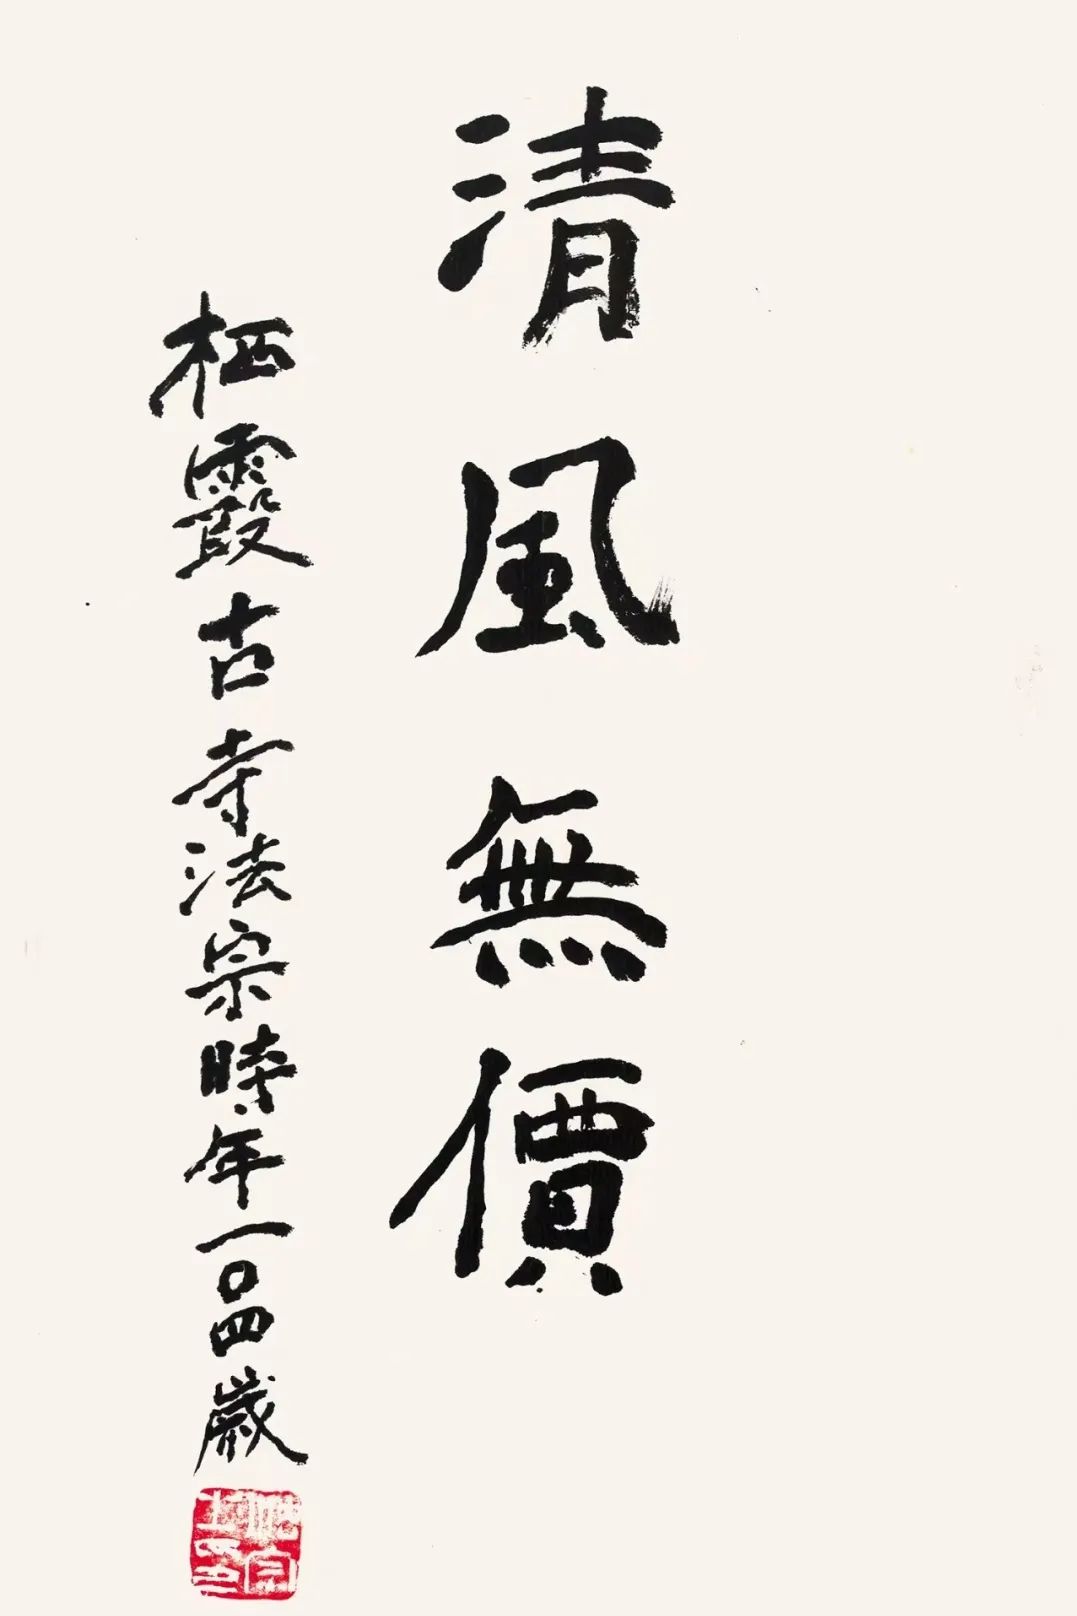 清風無價
栖霞古寺法宗時年一〇四歲